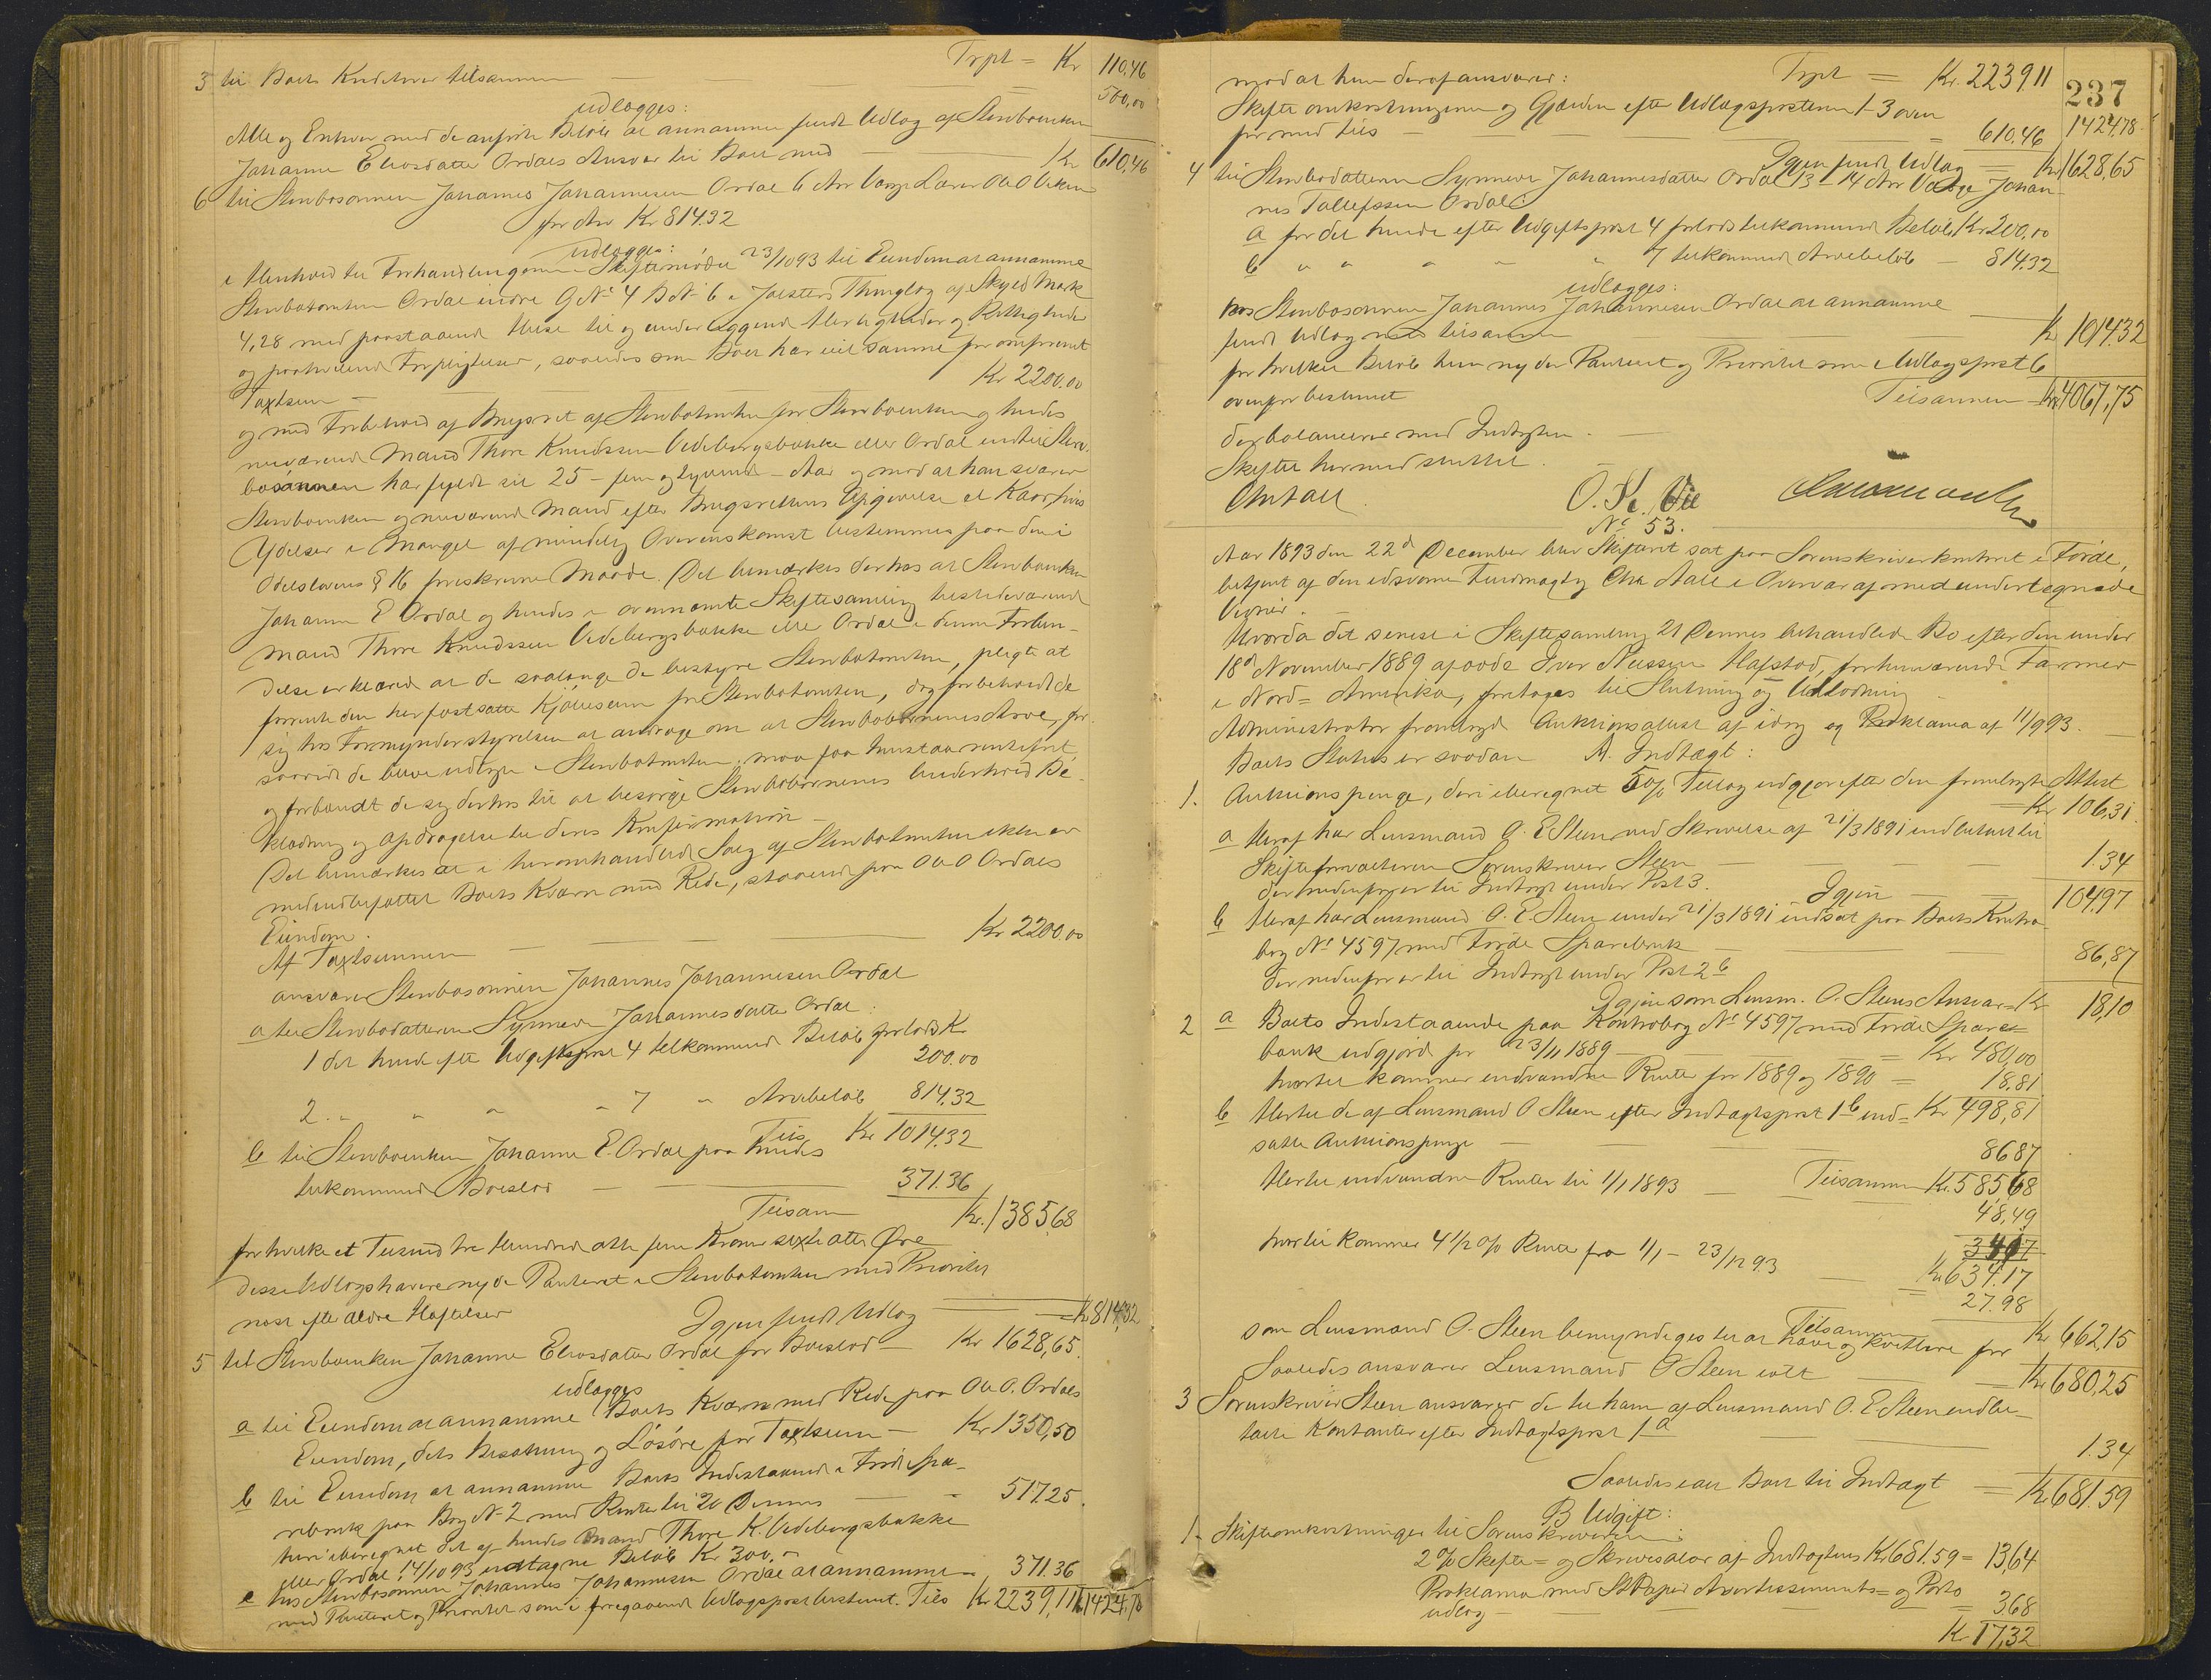 Trpt = Kr 110,46
3 til Boets Kreditorer tilsammen 500,00
udlægges:
Alle og Enhver med de anførte Beløb at annamme fuldt Udlæg af Stervboenken
Johanne Eliasdatter Ordals Ansvar til Boet med Kr 610,46
6 til Stervbosønnen Johannes Johannesen Ordal 6 Aar Værge Lærer
for Arv Kr 814.32
udlægges:
i Henhold til Forhandlingerne i Skiftemøde 23/1093 til Eiendom at annamme
Stervbotomten Ordal indre G.No 4 B.No 6 i Jølsters Thinglag af Skyld Mark
4,28 med paastaaende Huse til og underliggende Herligheder og Rettigheder
og paahvilende Forpligtelser, saaledes som Boet har eiet samme for omforenet
Taxtsum Kr 2200.00
og med Forbehold af Brugsret af Stervbotomten for Stervboenken og hendes
nuværende Mand Thore Knudssen Vedebergsbakke eller Ordal indtil Sterv-
bosønnen har fyldt sit 25 - fem og tyvende - Aar og mod at han svarer
Stervboenken og nuværende Mand efter Brugsrettens Ophørelse et Kaar, hvis
Ydelser i Mangel af mindelig Overenskomst bestemmes paa den i
Odelslovens § 16 foreskrevne Maade. Det bemærkes derhos at Stervboenken
Johanne E Ordal og hendes i ovennævnte Skiftesamling tilstedeværende
Mand Thore Knudssen Vedebergsbakke eller Ordal i denne Forbin-
delse erklæred at de saalænge de bestyre Stervbotomten, pligte at
forrente den her fastsatte Kjøbesum for Stervbotomten, dog forbeholdt de
sig hos Formynderstyrelsen at andrage om at Stervbobørnenes Arv, for
saavidt de blive udlagte i Stervbotomten, maa faa henstaa rentefrit
og forbandt de sig derhos til at besørge Stervbobørnenes Underhold, Be-
klædning og Opdragelse til deres Konfirmation -
Det bemærkes at i heromhandlede Salg af Stervbotomten ikke er
medindbefattet Boets Kværn med Rede, staaende paa O a O Ordals
Eiendom.
Af Taxtsummen Kr 2200.00
ansvarer Stervbosønnen Johannes Johannesen Ordal
a til Stervbodatteren Synneve Johannesdatter Ordal:
1 det hende efter Udgiftspost 4 tilkommende Beløb forlods Kr 200.00
2. " " " " 7 " Arvebeløb 814.32
Tils Kr 1014.32
b til Stervboenken Johanne E. Ordal paa hendes
tilkommende Boeslod 371.36
Tilsam Kr. 1385,68
for hvilke et Tusind tre Hundrede otti fem Kroner sexti otte Øre
disse Udlægshavere nyde Panteret i Stervbotomten med Prioritet
næst efter ældre Hæftelser
Igjen fuldt Udlæg Kr 814,32
5 til Stervboenken Johanne Eliasdatter Ordal for Boeslod Kr 1628,65.
udlægges
a til Eiendom at annamme Boets Kværn med Rede paa O a O. Ordals
Eiendom, dets Besætning og Løsøre for Taxtsum - Kr 1350,50
b til Eiendom at annamme Boets Indestaaende i Førde Spa-
rebank paa Bog No 2 med Renter til 20 Dennes 517.25.
heri iberegnet det af hendes Mand Thore K. Vedebergsbakke
eller Ordal 14/10 93 udtagne Beløb Kr 300.-
c hos Stervbosønnen Johannes Johannesen Ordal at annamme 371.36
med Panteret og Prioritet som i foregaaende Udlægspost bestemt. Tils Kr 2239,11 1424,78
237
mod at hun deraf ansvarer: Trpt = Kr. 2239 11 1424.78
Skifteomkostningerne og Gjælden efter Udlægsposterne 1-3 oven
for med tils 610.46
Igjen fuldt Udlæg = Kr 1628,65
4 til Stervbodatteren Synneve Johannesdatter Ordal 13-14 Aar Værge Johan-
nes Tollefssen Ordal:
a for det hende efter Udgiftspost 4 forlods tilkommende Beløb Kr 200.00
b " " " " " 7 tilkommende Arvebeløb - 814.32
udlægges:
hos Stervbosønnen Johannes Johannesen Ordal at annamme
fuldt Udlæg med tilsammen Kr 1014.32
for hvilket Beløb hun nyder Panteret og Prioritet som i Udlægspost 6
ovenfor bestemt
Tilsammen Kr 4067,75
der balancerer med Indtægten. -
Skiftet hermed sluttet. -
Chr Aall O. K. Vie
No 53.
Aar 1893 den 22d December blev Skifteret sat paa Sorenskriverkontoret i Førde,
betjent af den edsvorne Fuldmægtig Chr Aall i Overvær af medundertegnede
Vidner. -
Hvorda det senest i Skiftesamling 21 Dennes behandlede Bo efter den under
18d November 1889 afdøde Iver Nilssen Hafstad, forhenværende Farmer
i Nord-Amerika, foretages til Slutning og Udlodning
Administrator fremlagde Auktionsattest af idag og Proklama af 11/9 93.
Boets Status er saadan A. Indtægt:
1. Auktionspenge, deri iberegnet 5% Tillæg udgjør efter den fremlagte Attest Kr 106,31.
a Heraf har Lensmand O. E Steen ved Skrivelse af 21/3 1891 indbetalt til
Skifteforvalteren Sorenskriver Steen 1.34
der nedenfor er til Indtægt under Post 3. Igjen 104,97
b Heraf har Lensmand O. E. Steen under 21/3 1891 indsat paa Boets Kontra-
bog No 4597 med Førde Sparebank 86,87
der nedenfor er til Indtægt under Post 2 b
Igjen som Lensm. O. Steens Ansvar = Kr 18,10
2 a Boets Indestaaende paa Kontrabog No 4597 med Førde Spare-
bank udgjorde pr 23/11 1889 = Kr 480,00
hvortil kommer indvundne Renter for 1889 og 1890 = 18.81
b Hertil de af Lensmand O Steen efter Indtægtspost 1 b ind- Kr 498,81
satte Auktionspenge 86 87
Tilsammen Kr. 585,68
Hertil indvundne Renter til 1/1 1893 48,49
Kr 634.17
hvortil kommer 4 1/2 % Rente fra 1/1 - 23/12 93 27.98
Tilsammen Kr 662,15
som Lensmand O. Steen bemyndiges til at hæve og kvittere for
Saaledes ansvarer Lensmand O Steen ialt Kr 680,25
3 Sorenskriver Steen ansvarer de til ham af Lensmand O. E. Steen indbe-
talte Kontanter efter Indtægtspost 1 a 1.34
Saaledes eier Boet til Indtægt = Kr 681.59
B Udgift:
1. Skifteomkostninger til Sorenskriveren:
2% Skifte- og Skrivesalær af Indtægtens Kr 681.59 = 13,64
Proklama med St Papir Avertissements- og Porto
udlæg = 3.68
Kr 17,32